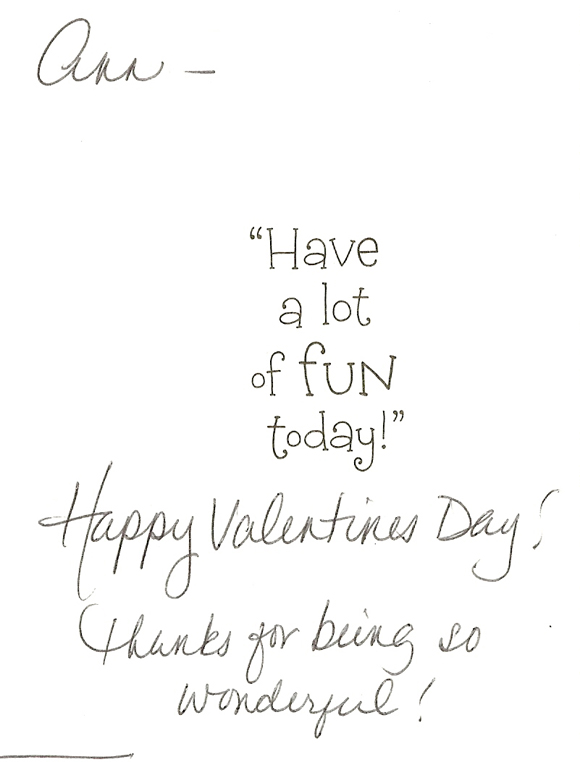 Ann –
“Have
a lot
of fUN
today!”
Happy Valentines Day!
Thanks for being so
wonderful!